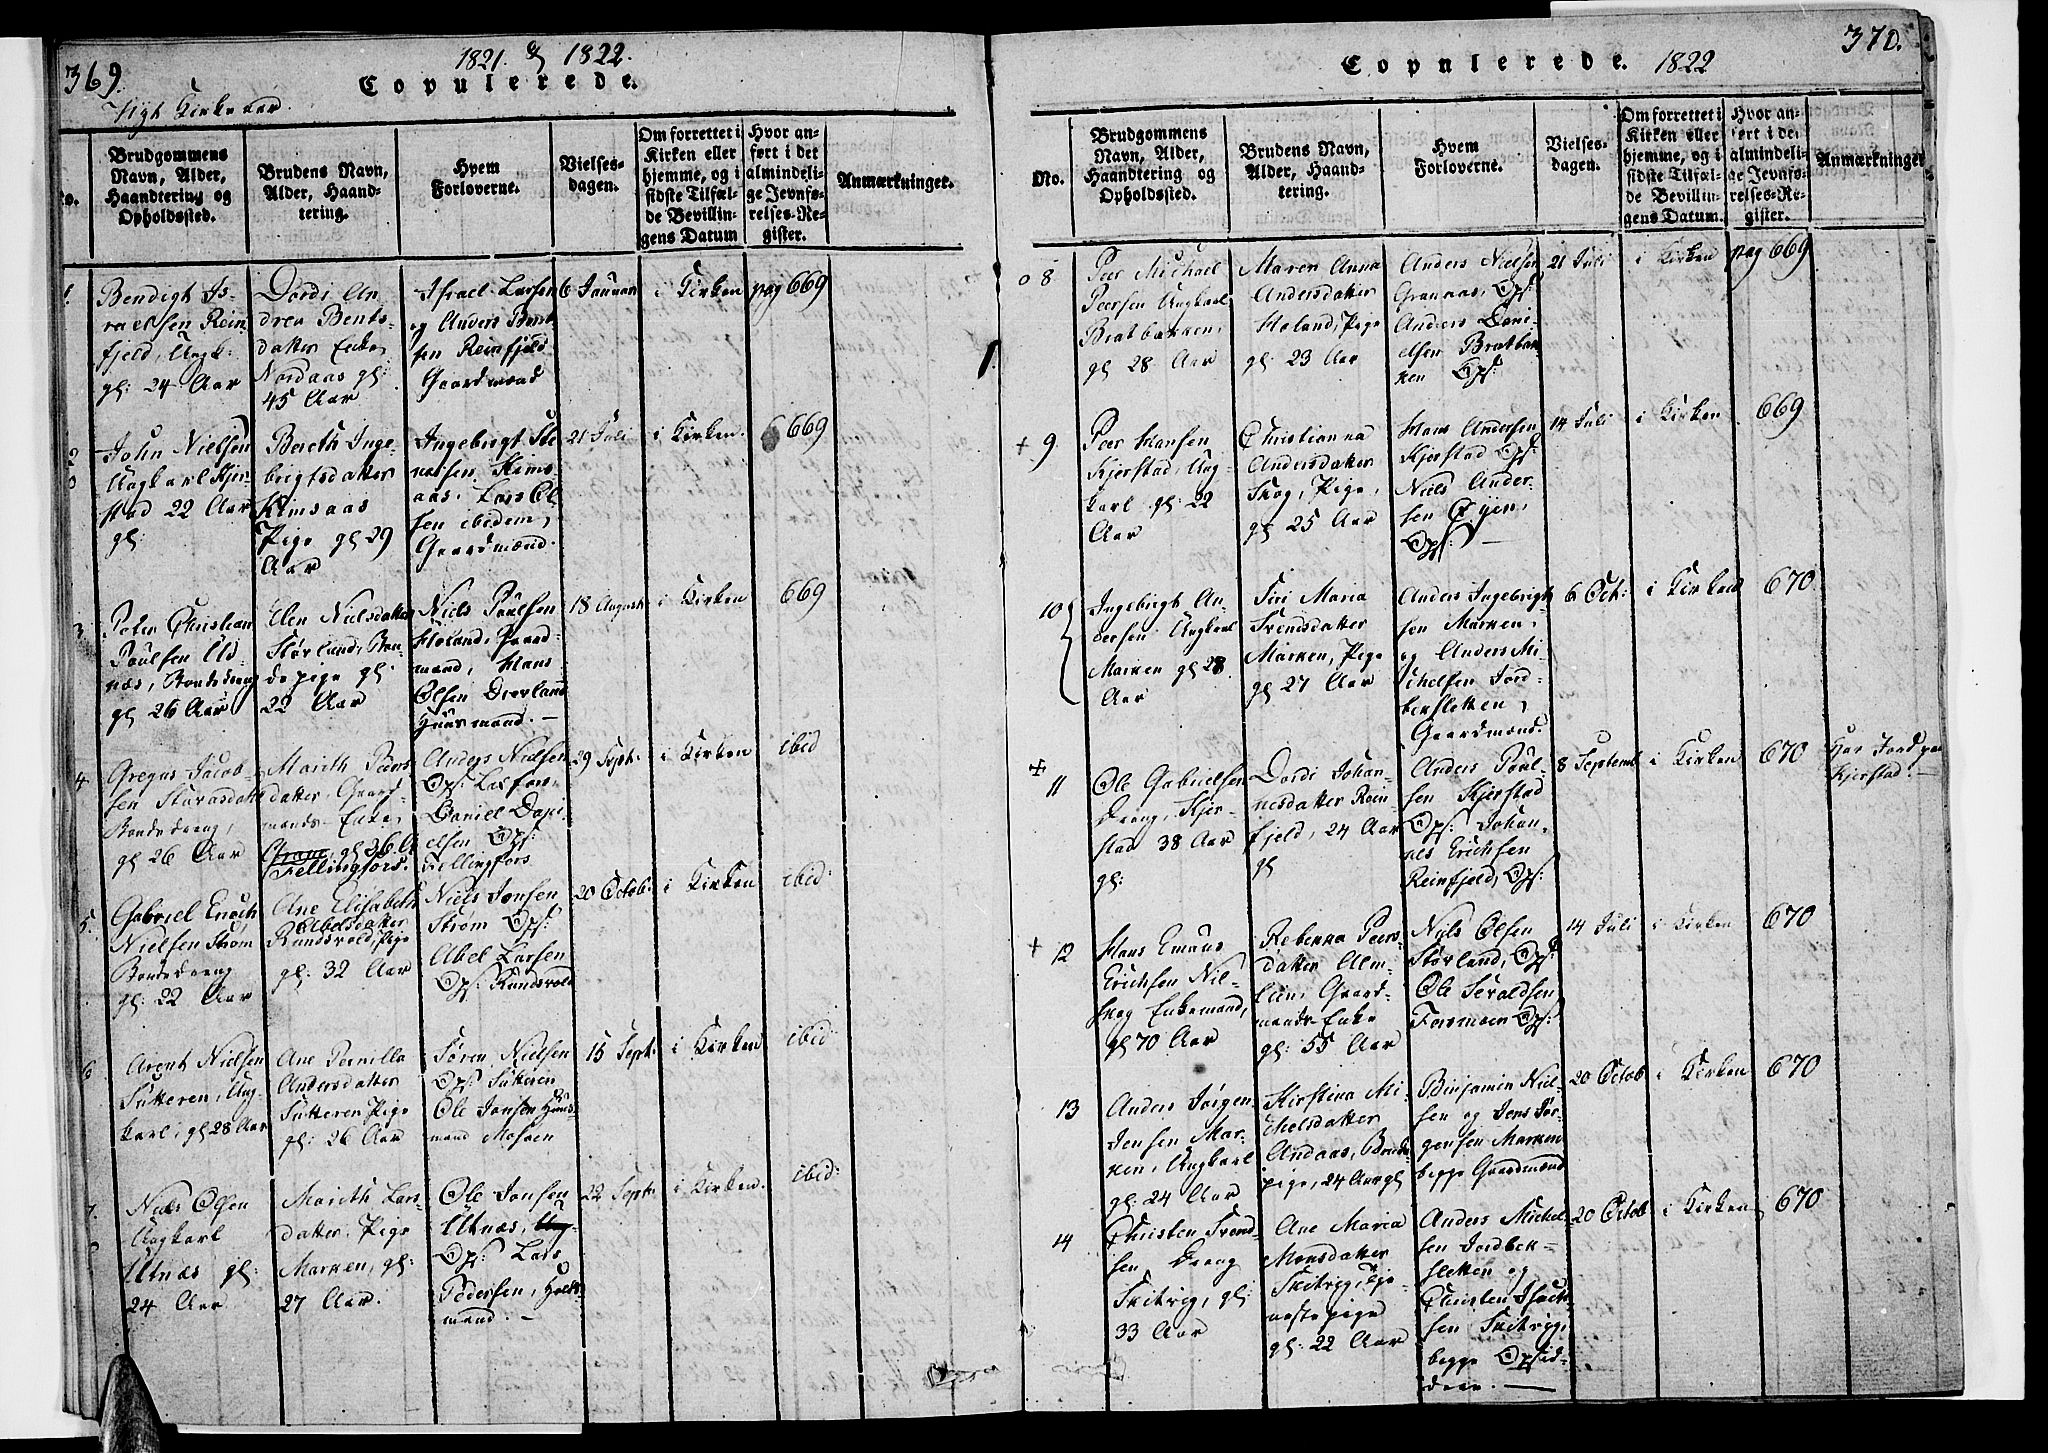 369.
1821. & 1822.
Copulerede.
Nyt Kirkeaar
No.
Brudgommens
Navn, Alder,
Haandtering og
Opholdssted.
Brudens Navn,
Alder, Haand-
tering.
Hvem
Forloverne.
Vielses-
dagen.
Om forrettet i
Kirken eller
hjemme, og i
sidste Tilfæl-
de Bevillin-
gens Datum
Hvor an-
ført i det
almindeli-
ge Jevnfø-
relses-Re-
gister.
Anmærkninger.
1.
Bendigt Is-
raelsen Rein
fjeld, Ungk:
gl: 24 Aar
Dordi An
drea Bents-
datter Enke
Nordaas gl:
45 Aar
Israel Larsen
og Anders Bent
sen Reinfjeld
Gaardmænd
6 Januar
i Kirken
pag 669
2
John Nielsen
Ungkarl Kjer-
stad 22 Aar
gl:
Bereth Inge
brigtsdatter
Kimsaas
Pige gl 29
Aar
Ingebrigt Ste
nersen Kims
aas. Lars Ol
sen ibidem,
Gaardmænd.
21 Juli
i Kirken.
669
3
Peter Christian
Poulsen Ud-
næs, Bondedreng
gl 26 Aar
Elen Nielsdatter
Størland, Bon-
de pige gl:
22 Aar
Niels Poulsen
Høland, Gaard-
mand, Hans
Olsen Dverland
Huusmand. —
18 August
i Kirken
669
4
Gregus Jacob-
sen
Bondedreng,
gl 26 Aar
Marith Peers
datter, Gaard-
mands-Enke,
gl 36. A
Fellingfors.
Anders Nielsen
Ops:
Daniel Dani
elsen Ops:
Fellingfors
29 Sept:
i Kirken
ibid
5
Gabriel Enoch
Nielsen Strøm
Bondedreng
gl: 22 Aar
Ane Elisabeth
Abelsdatter
Rundsvold, Pige
gl: 32 Aar
Niels Jonsen
Strøm Ops:
Abel Larsen
Ops: Rundsvold
20 Octob:
i Kirken
ibid:
6
Arent Nielsen
Sutteren, Ung-
karl, gl 28 Aar
Ane Pernilla
Andersdatter
Sutteren Pige
gl: 26 Aar
Søren Nielsen
Ops: Sutteren
Ole Jonsen Huus
mand Mosøen
15 Sept:
i Kirken
ibid
7.
Niels Olsen
Ungkarl
Utnæs gl:
24 Aar
Marith Lars
datter, Pige
Marken, gl:
27 Aar.
Ole Jonsen
Utnæs,
Ops: Lars
Pedersen, Huus-
mand. —
22 Sept:
i Kirken.
ibid:
Copulerede. 1822
370.
No.
Brudgommens
Navn, Alder,
Haandtering og
Opholdssted.
Brudens Navn,
Alder, Haand-
tering.
Hvem
Forloverne.
Vielses-
dagen.
Om forrettet i
Kirken eller
hjemme, og i
sidste Tilfæl-
de Bevillin-
gens Datum.
Hvor an-
ført i det
almindeli-
ge Jevnfø-
relses-Re-
gister.
Anmærkninger
o 8
Peer Michael
Peersen Ungkarl
Bratbakken,
gl 28 Aar
Maren Anna
Andersdatter
Høland, Pige
gl: 23 Aar
Anders Nielsen
Granaas, Ops:
Anders Dani-
elsen Bratbak
ken Ops:
21 Juli
i Kirken
pag 669
+ 9
Peer Hansen
Kjerstad, Ung-
karl gl: 22
Aar
Christianna
Andersdatter
Skog, Pige,
gl 25 Aar
Hans Andersen
Kjerstad Ops:
Niels Ander-
sen Øijen,
Ops: —
14 Juli
i Kirken
669
10
Ingebrigt An-
dersen Ungkarl
Marken gl 28
Aar
Siri Maria
Svendsdatter
Marken, Pige
gl 27 Aar
Anders Ingebrigt
sen Marken,
og Anders Mi-
chelsen Jord-
beksletten,
Gaardmænd.
6 Oct:
i Kirken
670
+ 11
Ole Gabrielsen
Dreng, Kjer-
stad 38 Aar
gl:
Dordi Johan-
nesdatter Rein
fjeld, 24 Aar
gl
Anders Poul-
sen Kjerstad
Ops: Johan-
nes Erichsen
Reinfjeld, Ops:
8 Septemb
i Kirken
670
Har Jord paa
Kjerstad. —
+ 12
Hans Emaus
Erichsen Nil-
skog Enkemand,
gl 70 Aar
Rebekka Peers-
datter Alm-
lien, Gaard-
mands Enke
gl: 55 Aar
Niels Olsen
Størland, Ops:
Ole Seraldsen
Forsmoen Ops:
14 Juli
i Kirken
670
13
Anders Jørgen
Jensen Mar-
ken, Ungkarl
gl: 24 Aar
Kirstina Mi-
chelsdatter
Andaas, Bonde
pige, 24 Aar gl
Binjamin Niel-
sen og Jens Jør-
gensen Marken
begge Gaardmænd
20 Octob
i Kirken
670
14
Christen Svend-
sen Dreng
Skitvig, gl:
33 Aar
Ane Maria
Monsdatter
Skitvig, Tje-
neste pige
gl: 22 Aar
Anders Michel-
sen Jordbek-
sletten og
Christen Isach-
sen Skitvig,
begge Opsid-
dere. —
20 Octob
i Kirken
670